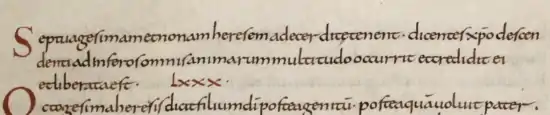 Septuagesimam et nonam heresem adecerdite tenent · dicentes xp̄o descen
denti ad inferos omnis animarum multitudo occurrit et credidit ei
et liberata est · LXXX ·
Octogesima heresis dicit filium dī postea genitū · postea quā voluit pater ·